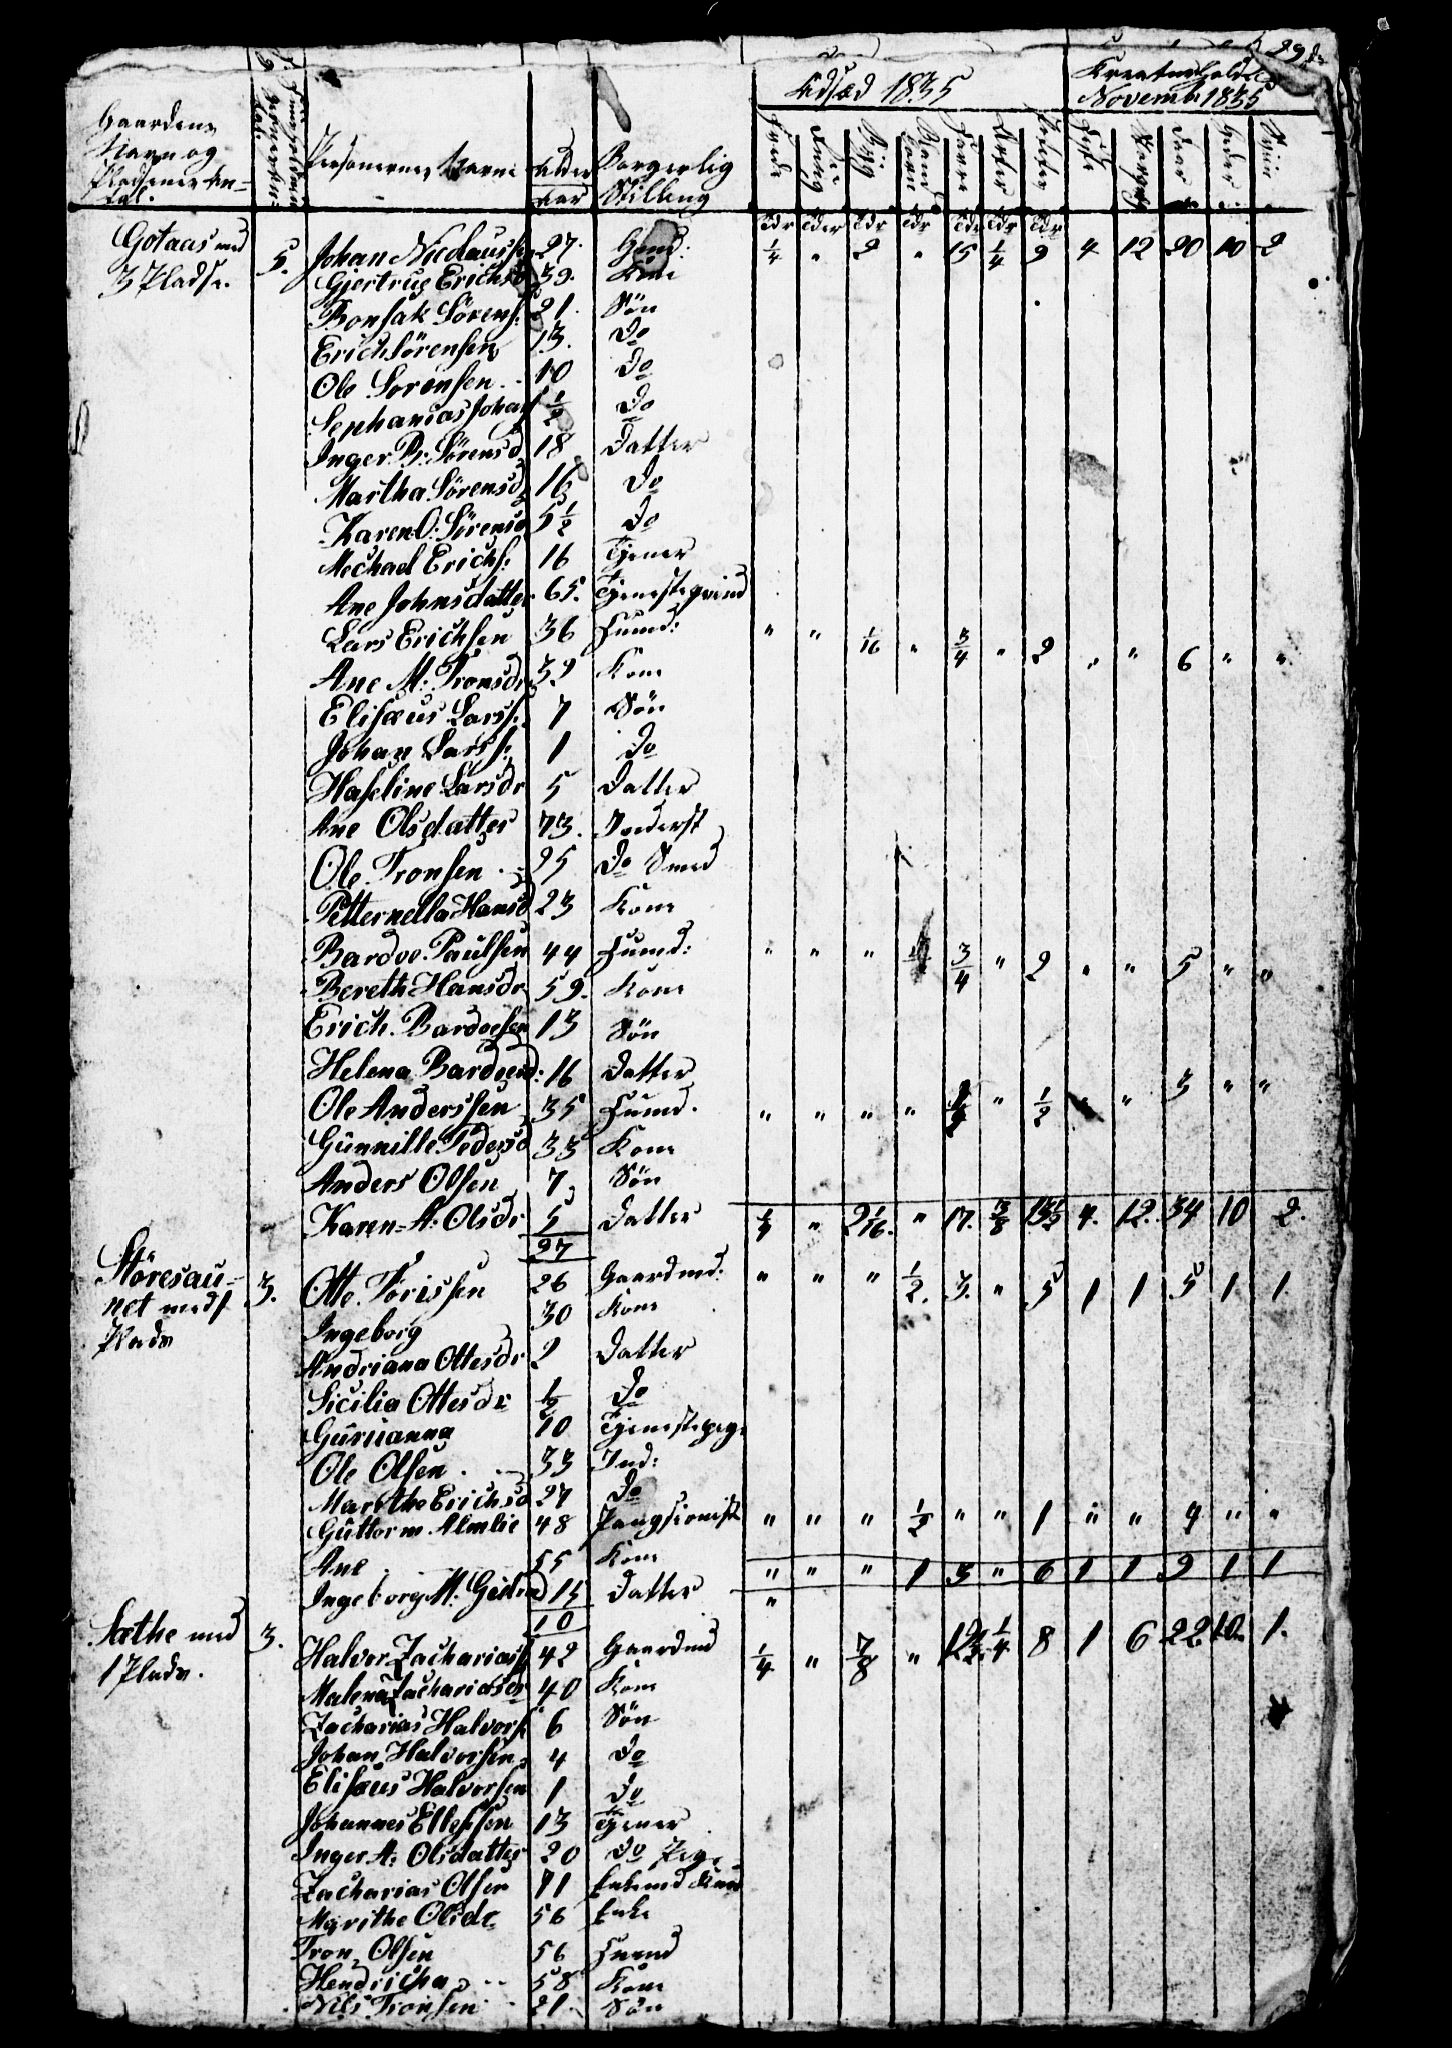 Udsæd 1835
Kreaturhold
Novemb: 1835
Gaardens
Navn og
Pladsenes An=
tal.
Personernes Navne
Alder
Aar
Borgerlig
Stilling
Hvede
Rug
Byg
Havre
Erter
Poteter
Heste
Faar
Geder
Sviin
Tdr Tdr Tdr Tdr Tdr Tdr Tdr
Gotaas med 5. Johan Niclaus: 27. Gmd: 1/4 " 2 " 15 1/4 9 4 12 20 10 2
3 Pladse. Gjertrug Erichsd 39. Kone
Bonsak Sörens: 21. Sön
Erich Sörensen 13. Do
Ole Sorensen 10 Do
Sephanias Johans 1/2 Do
Inger B: Sörensd 18 Datter
Martha Sörensd 16 Do
Karen O: Sörensd 5 1/2 Do
Mechael Erichs: 16 Tjener
Ane Johnsdatter 65. Tjenesteqvind
Lars Erichsen 36 Huusmd: " " 1/16 " 3/4 " 2 " " 6 " "
Ane M: Tronsdr 39 Kone
Elisæus Larss: 7 Sön
Johan Larss: 1 Do
Haseline Larsdr 5 Datter
Ane Olsdatter 73. Inderst
Ole Tronsen 25 Do Smed
Petternella Hansd 23 Kone
Bardoe Paulsen 44 Huusmd: " " " 3/4 " 2 " " 5 " "
Bereth Hansdr 59. Kone
Erich Bardoesen 13 Sön
Helena Bardoesd: 16 Datter
Ole Anderssen 35 Huusmd. " " " " " 1/2 " " 3 " "
Gunnille Pedersd 33 Kone
Anders Olsen 7 Sön
Karen A: Olsdr 5 Datter 1/4 " 2 1/16. " 17. 3/8 13 1/2 4. 12. 34 10 2.
27
Störesau= 3. Otte Torissen 26 Gaardmd: " " " 1/2. 3. " 5 1 1 5 1 1.
net med 1 Ingeborg 30 Kone
Plads Andriana Ottesdr 2 Datter
Sicilia Ottesdr 1/2 Do
Guruanna 10 Tjenestepige
Ole Olsen 33 Ind:
Marthe Erichsd 27 Do
Guttorm Almlie 48 Pangsionist " " " 1/2 " " 1 " " 4 " "
Ane 55 Kone " " " 1 3 " 6 1 1 9 1 1
Ingeborg M: 15 Datter
10
Sæthe med 3. Halvor Zacharias 42 Gaardmd 1/4 " 7/8 " 1/4 8 1 6 22 10. 1.
1 Plads. Malena Zachariasdr 40 Kone
Zacharias Halvors 6 Sön
Johan Halvorsen 4 Do
Elisæus Halvorsen 1 Do
Johannes Ellefsen 13 Tjener
Inger A: Olsdatter 20 Do Pige
Zacharias Olsen 71 Enkemd
Mgrithe Olsdr 56 Enke
Tron Olsen 56 Huusmd
Hendricha 58 Kone
Nils Tronsen 21 Sön